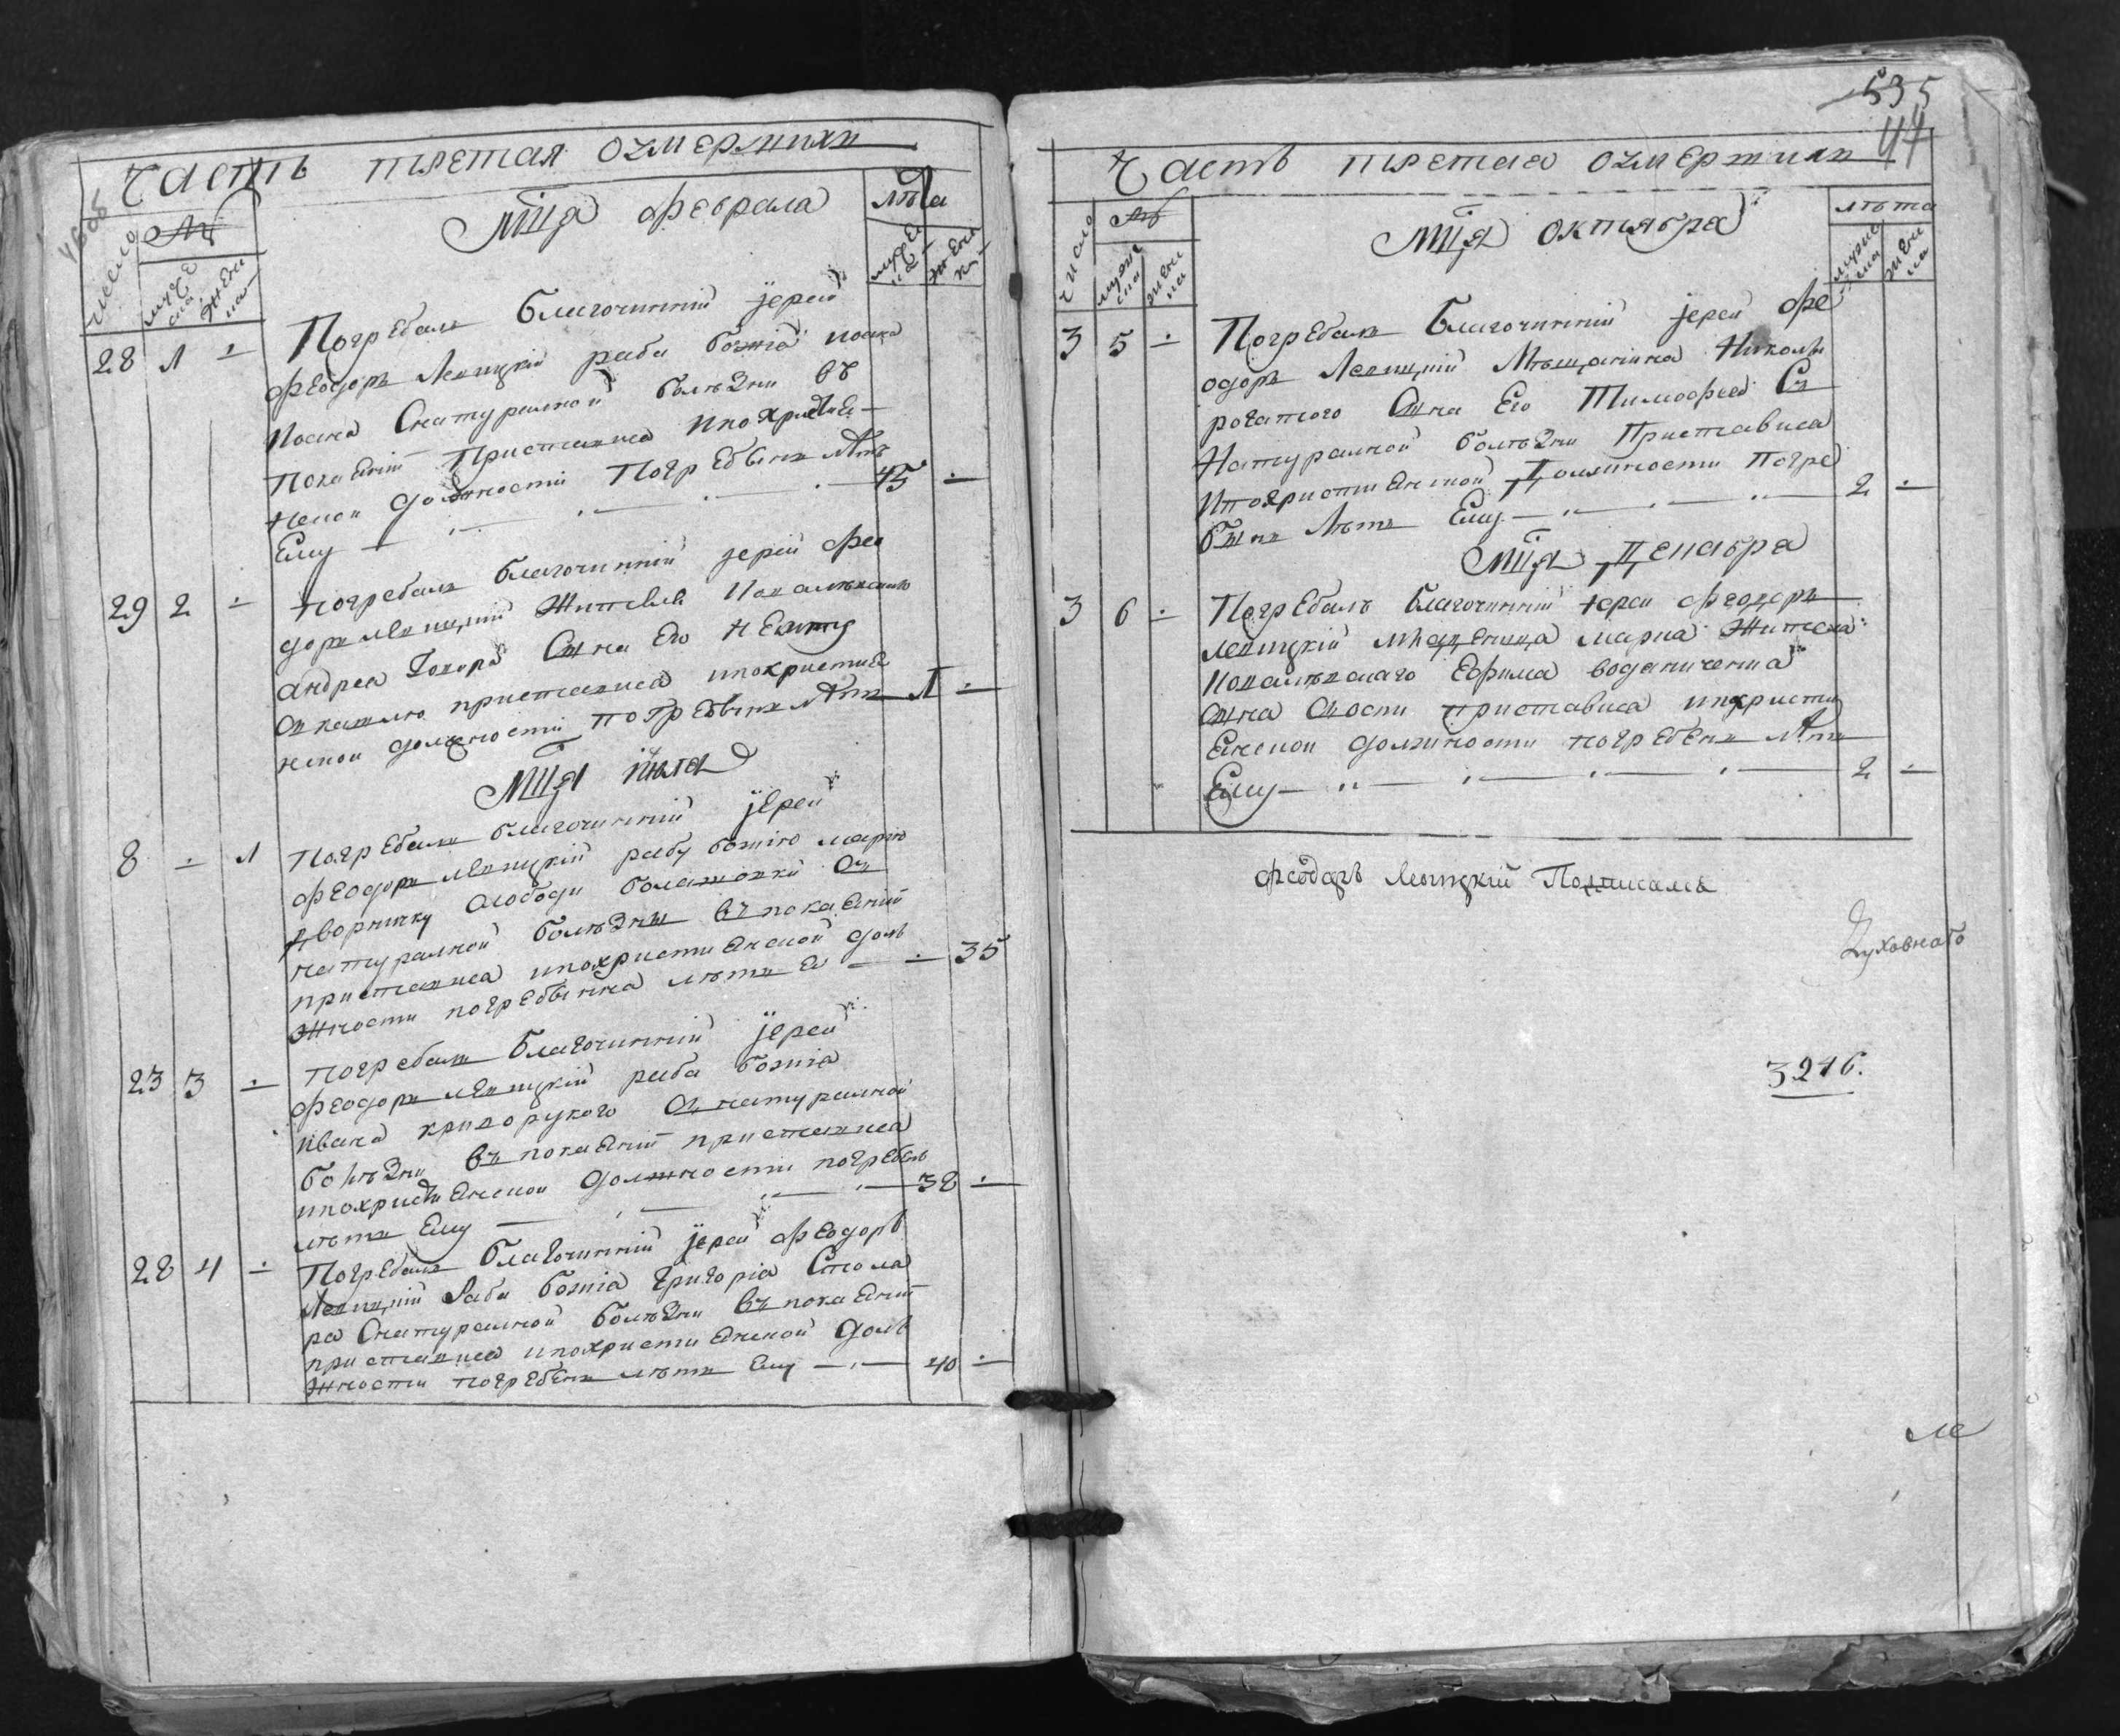 Часть третая озмершихъ
число
мужеска
женска
Мца Февраля
лѣта
мужеска
женска
28 1 Погребалъ благочинній іерей
Феодоръ Левицкій раба божія
Иоана Снатуралной болѣзни въ
покаеніи Приставися ипохристіе
нской должности Погребенъ лѣтъ
Ему 45
29 2 погребалъ благочинній іерей Фео
доръ левицкій жителя
андрея Сина его
Скашлю приставися ипохристие
нской должности погребенъ лѣтъ 1
Мца июля
8 1 погребалъ благочинній іерей
Феодоръ левицкій рабу божію марию
дворничку слободи Съ
натуралной болѣзни въ покаеній
приставися ипохристиенской долъ
жности погребенна лѣтъ Ей 35
23 3 погребалъ благочинній іерей
Феодоръ левицкій раба божія
ивана криворукого Снатуралной
болѣзни въ покаеній приставися
ипохристиенской должности погребенъ
лѣтъ Ему 38
28 4 Погребалъ благочинній іерей Феодоръ
Левицкій Раба божія григорія Столя
ра Снатуралной болѣзни въ покаеній
приставися ипохристиенской долъ
жности погребенъ лѣтъ Ему 40
535
44
Часть третая озмершихъ
число
мужеска
женска
Мца октября
лѣта
мужеска
женска
3 5 Погребалъ благочинній іерей Фе
одоръ Левицкій Мѣщанина Николи
рогатого Сина Его Тимофея Съ
Натуралной болѣзни Приставися
Ипохристиенской Должности Погре
бенъ Лѣтъ Ему 2
Мца Декабря
3 6 Погребалъ благочинній іерей Феодоръ
левицкій младенца марка Жителя
Ефима водяниченка
сина Соспи приставися ипохристи
енской должности погребенъ Лѣтъ
Ему 2
Феодоръ Левицкій Подписалъ
Духовнаго
3246.